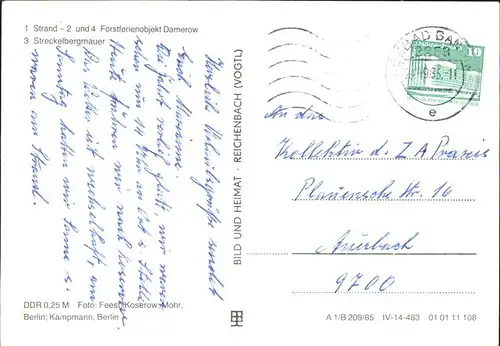 1 Strand – 2 und 4 Forstferienobjekt Damerow
3 Streckelbergmauer
Herzliche Urlaubsgrüße sendet
Euch Marianne.
schon um 14 Uhr an Ort u. Stelle
Heute fahren wir nach
Das Wetter ist wechselhaft, am
Sonntag hatten wir Sonne u.
waren am Strand.
DDR 0,25 M Foto: Feest, Koserow; Mohr,
Berlin; Kampmann, Berlin
BILD UND HEIMAT · REICHENBACH (VOGTL)
10
e
An das
Kollektiv d. ZA Praxis
Plauensche Str. 16
Auerbach
9700
A 1/B 209/85 IV-14-483 01 01 11 108